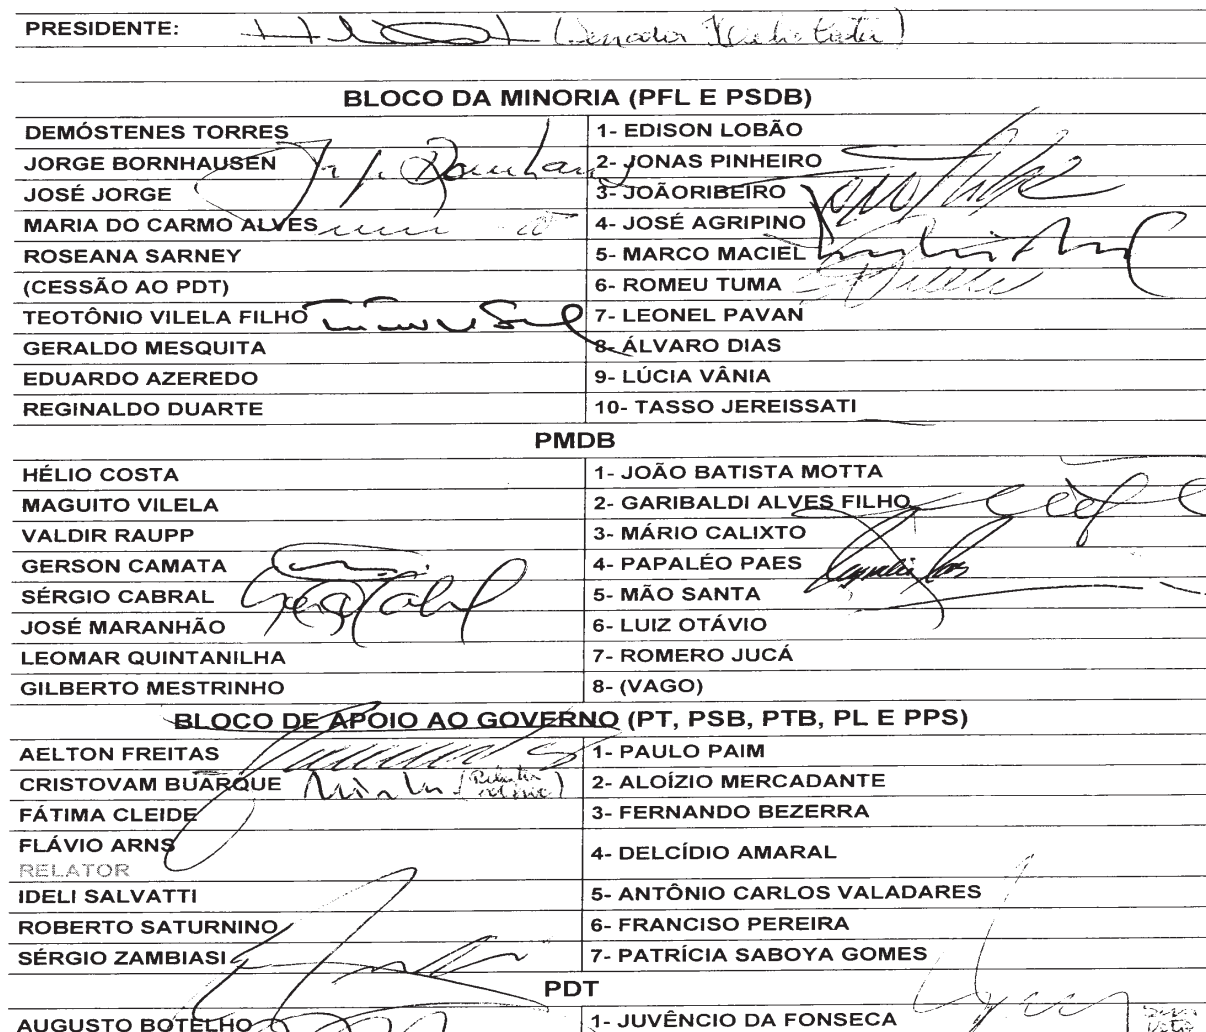 PRESIDENTE: (Senador Hélio Costa)
BLOCO DA MINORIA (PFL E PSDB)
DEMÓSTENES TORRES 1- EDISON LOBÃO
JORGE BORNHAUSEN 2- JONAS PINHEIRO
JOSÉ JORGE 3- JOÃORIBEIRO
MARIA DO CARMO ALVES 4- JOSÉ AGRIPINO
ROSEANA SARNEY 5- MARCO MACIEL
(CESSÃO AO PDT) 6- ROMEU TUMA
TEOTÔNIO VILELA FILHO 7- LEONEL PAVAN
GERALDO MESQUITA 8- ÁLVARO DIAS
EDUARDO AZEREDO 9- LÚCIA VÂNIA
REGINALDO DUARTE 10- TASSO JEREISSATI
PMDB
HÉLIO COSTA 1- JOÃO BATISTA MOTTA
MAGUITO VILELA 2- GARIBALDI ALVES FILHO
VALDIR RAUPP 3- MÁRIO CALIXTO
GERSON CAMATA 4- PAPALÉO PAES
SÉRGIO CABRAL 5- MÃO SANTA
JOSÉ MARANHÃO 6- LUIZ OTÁVIO
LEOMAR QUINTANILHA 7- ROMERO JUCÁ
GILBERTO MESTRINHO 8- (VAGO)
BLOCO DE APOIO AO GOVERNO (PT, PSB, PTB, PL E PPS)
AELTON FREITAS 1- PAULO PAIM
CRISTOVAM BUARQUE 2- ALOÍZIO MERCADANTE
FÁTIMA CLEIDE 3- FERNANDO BEZERRA
FLÁVIO ARNS 4- DELCÍDIO AMARAL
RELATOR
IDELI SALVATTI 5- ANTÔNIO CARLOS VALADARES
ROBERTO SATURNINO 6- FRANCISO PEREIRA
SÉRGIO ZAMBIASI 7- PATRÍCIA SABOYA GOMES
PDT
AUGUSTO BOTELHO 1- JUVÊNCIO DA FONSECA